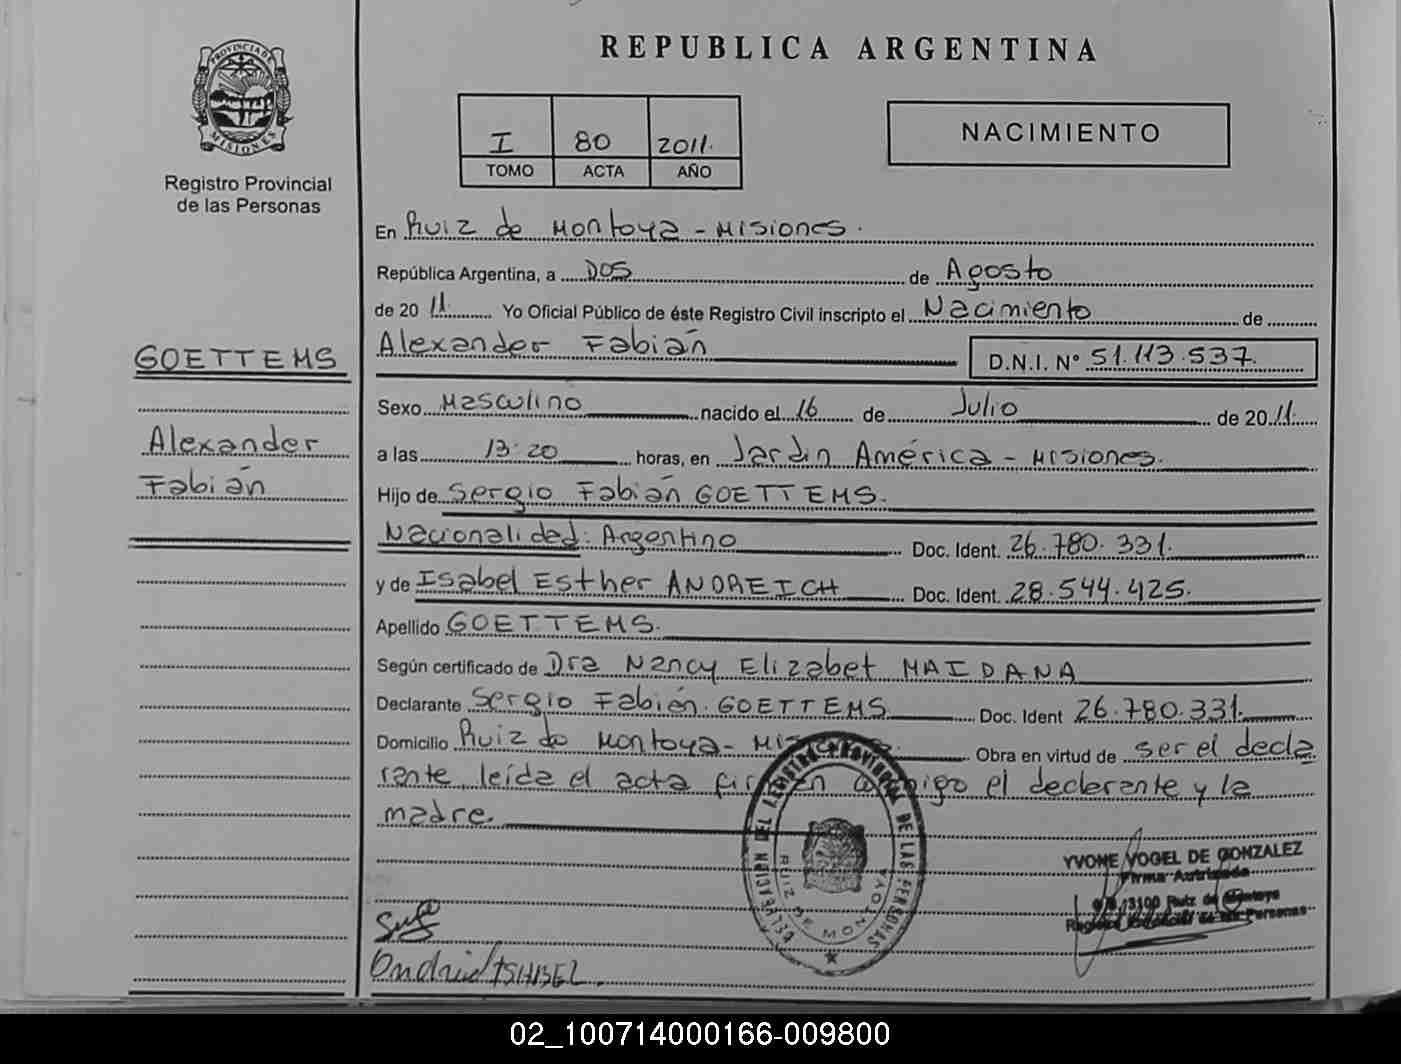 PROVINCIA DE
MISIONES
Registro Provincial
de las Personas
GOETTEMS
Alexander
Fabián
REPUBLICA ARGENTINA
I 80 2011.
TOMO ACTA AÑO
NACIMIENTO
En Ruiz de Montoya - Misiones.
República Argentina, a DOS de Agosto
de 20 11 Yo Oficial Público de éste Registro Civil inscripto el Nacimiento de
Alexander Fabián D.N.I. N° 51.113.537.
Sexo Masculino nacido el 16 de Julio de 20 11.
a las 13:20 horas, en Jardin América - Misiones.
Hijo de Sergio Fabián GOETTEMS.
Nacionalidad: Argentino Doc. Ident. 26.780.331.
y de Isabel Esther ANDREICH Doc. Ident. 28.544.425.
Apellido GOETTEMS.
Según certificado de Dra Nancy Elizabet MAIDANA
Declarante Sergio Fabián GOETTEMS Doc. Ident 26.780.331.
Domicilio Ruiz de Montoya - Misiones. Obra en virtud de ser el decla
rante, leída el acta firman conmigo el declarante y la
madre.
DELEGACION DEL REGISTRO PROVINCIAL DE LAS PERSONAS
RUIZ DE MONTOYA
YVONE VOGEL DE GONZALEZ
Firma Autorizada
Ruiz de Montoya
Registro Provincial de las Personas
ISABEL.
02_100714000166-009800